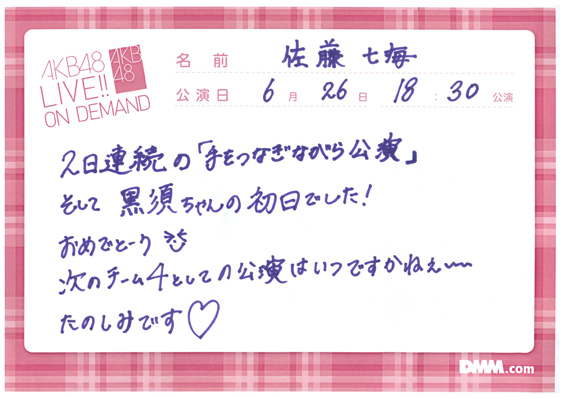 AKB48
LIVE!!
ON DEMAND
AKB
48
名前 佐藤 七海
公演日 6月 26日 18:30 公演
2日連続の「手をつなぎながら公演」
そして 黒須ちゃんの初日でした!
おめでとーり
次のチーム4としての公演はいつですかねぇ〰
たのしみです♡
DMM.com